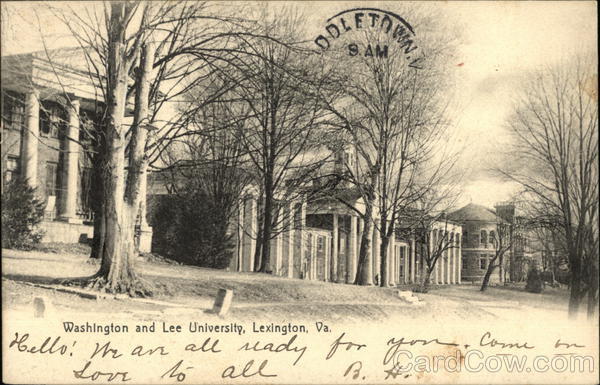 DOLETOWN
8 AM
Washington and Lee University, Lexington, Va.
Hello! We are all ready for you. Come on
Love to all B. H.
CardCow.com